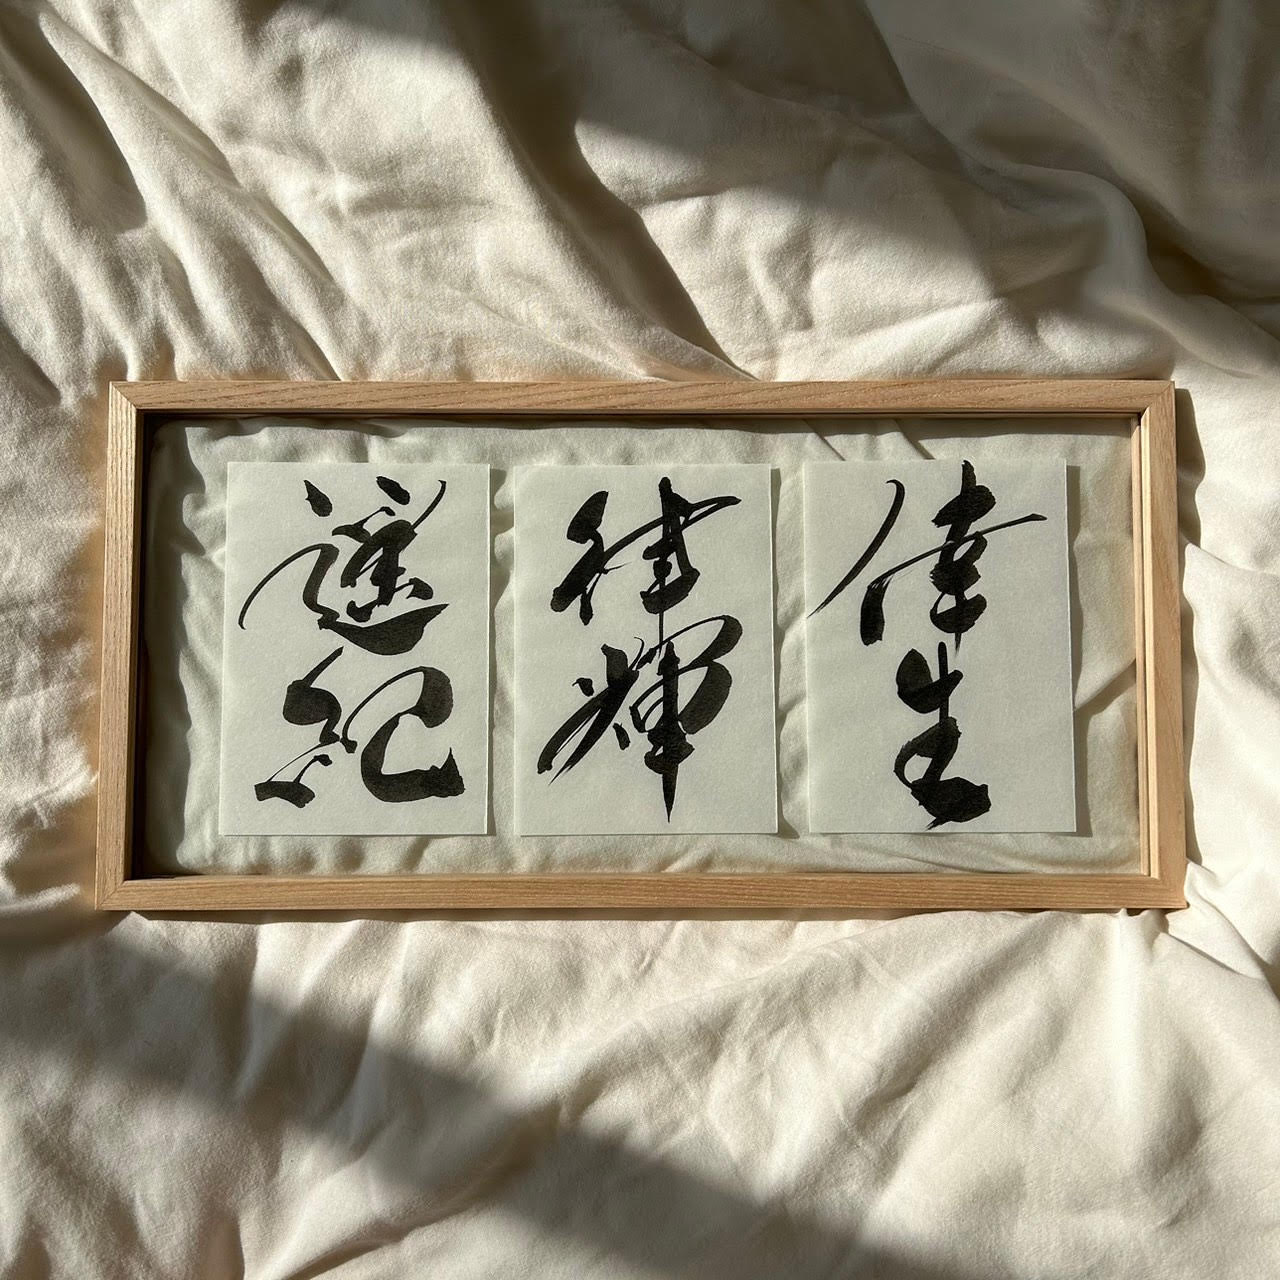 倖生
律輝
遥紀